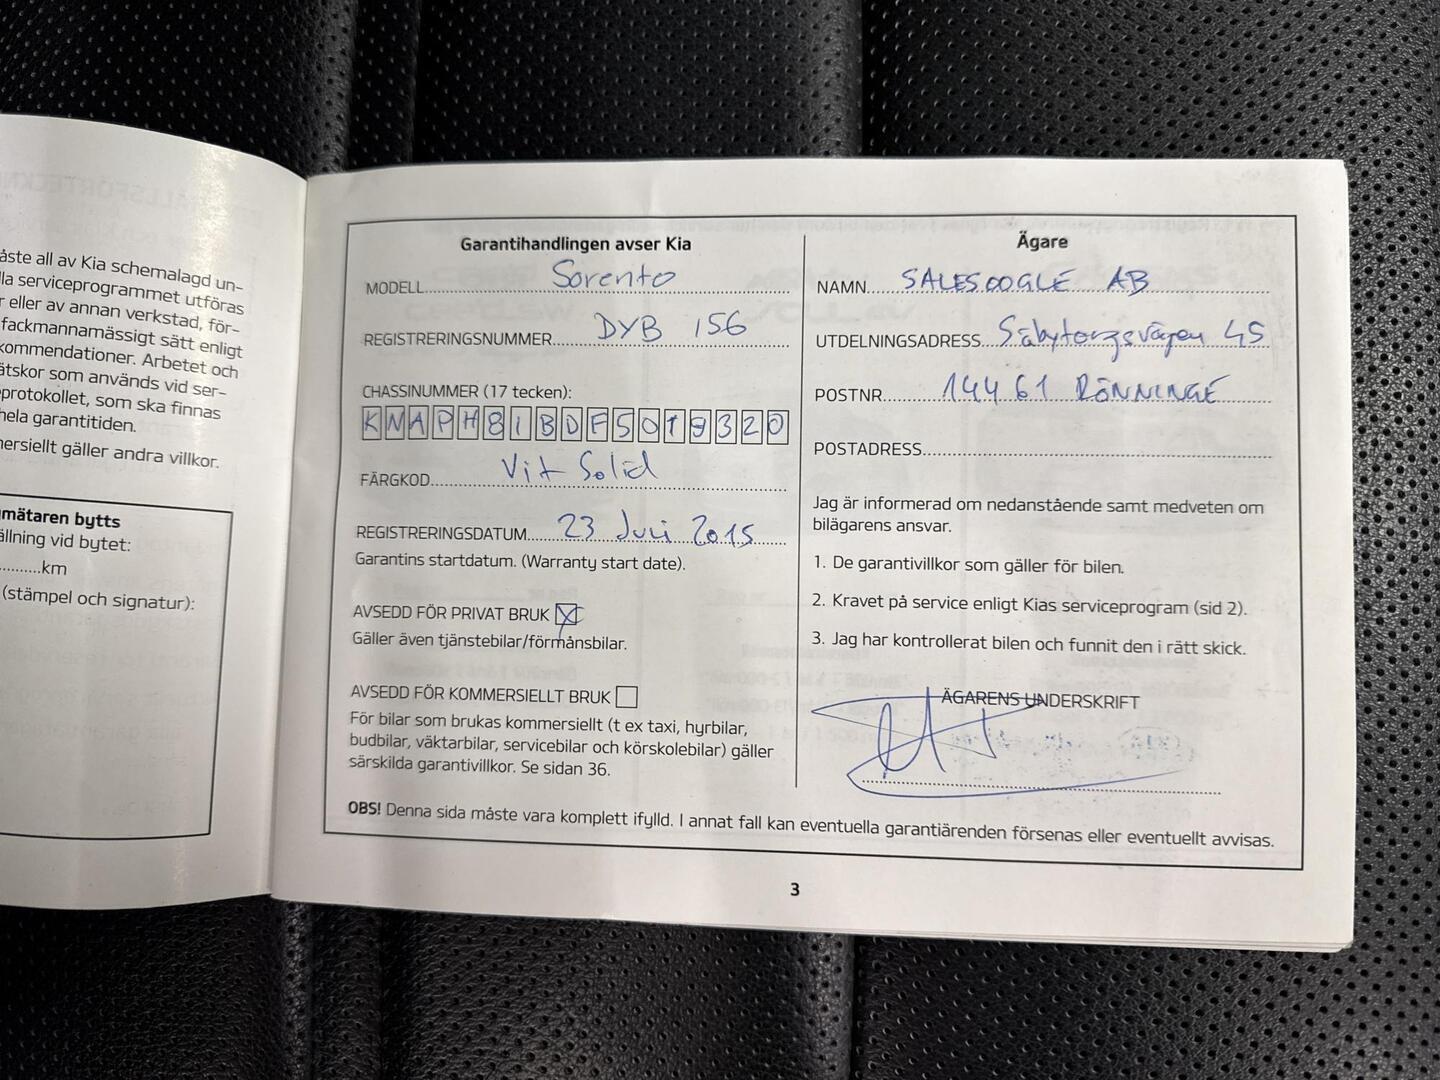 åste all av Kia schemalagd un-
la serviceprogrammet utföras
r eller av annan verkstad, för-
fackmannamässigt sätt enligt
kommendationer. Arbetet och
ätskor som används vid ser-
protokollet, som ska finnas
hela garantitiden.
mersiellt gäller andra villkor.
mätaren bytts
ällning vid bytet:
..........km
(stämpel och signatur):
Garantihandlingen avser Kia
MODELL Sorento
REGISTRERINGSNUMMER DYB 156
CHASSINUMMER (17 tecken):
KNAPH81BDF5019320
FÄRGKOD Vit Solid
REGISTRERINGSDATUM 23 Juli 2015
Garantins startdatum. (Warranty start date).
AVSEDD FÖR PRIVAT BRUK X
Gäller även tjänstebilar/förmånsbilar.
AVSEDD FÖR KOMMERSIELLT BRUK
För bilar som brukas kommersiellt (t ex taxi, hyrbilar,
budbilar, väktarbilar, servicebilar och körskolebilar) gäller
särskilda garantivillkor. Se sidan 36.
Ägare
NAMN SALESOOGLE AB
UTDELNINGSADRESS Säbytorgsvägen 45
POSTNR 144 61 RÖNNINGE
POSTADRESS
Jag är informerad om nedanstående samt medveten om
bilägarens ansvar.
1. De garantivillkor som gäller för bilen.
2. Kravet på service enligt Kias serviceprogram (sid 2).
3. Jag har kontrollerat bilen och funnit den i rätt skick.
ÄGARENS UNDERSKRIFT
OBS! Denna sida måste vara komplett ifylld. I annat fall kan eventuella garantiärenden försenas eller eventuellt avvisas.
3